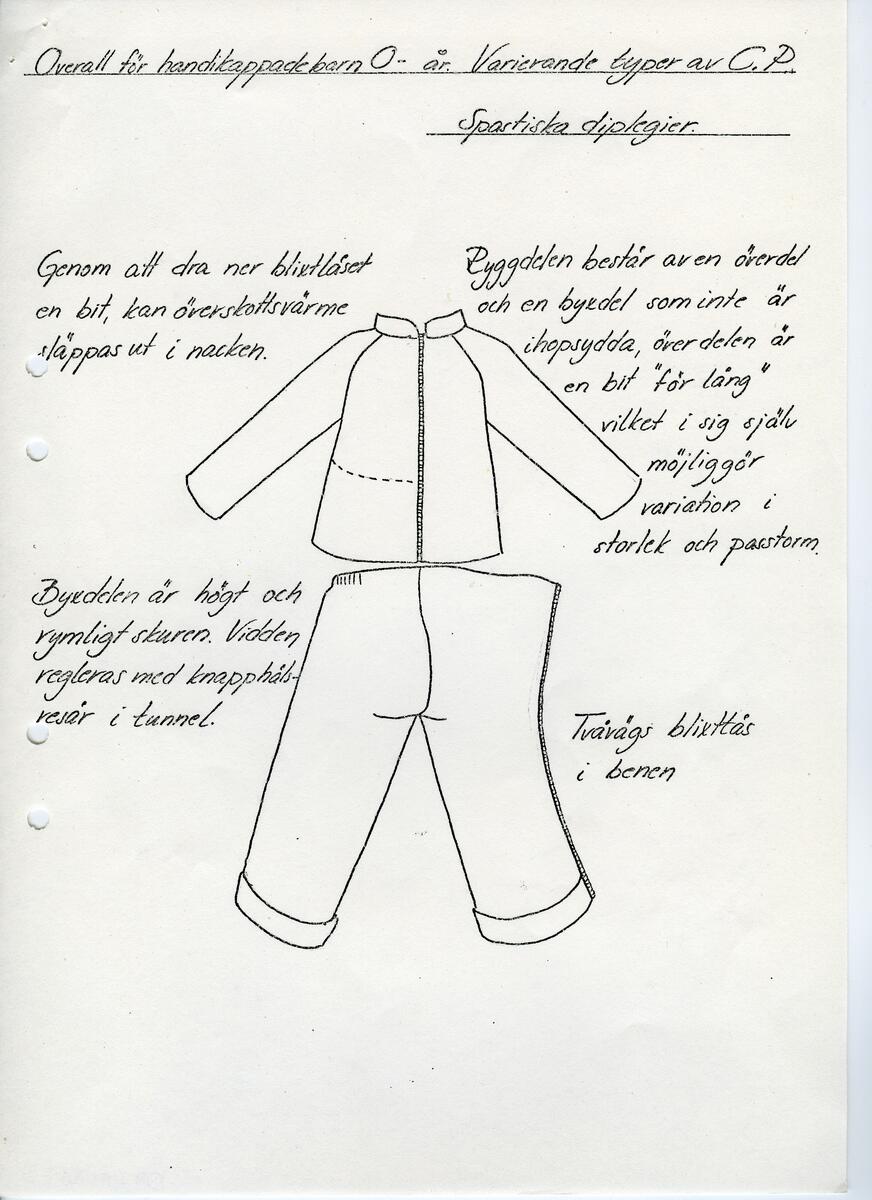 Overall för handikappade barn 0- år. Varierande typer av C.P.
Spastiska diplegier.
Genom att dra ner blixtlåset
en bit, kan överskottsvärme
släppas ut i nacken.
Ryggdelen består av en överdel
och en byxdel som inte är
ihopsydda, överdelen är
en bit "för lång"
vilket i sig själv
möjliggör
variation i
storlek och passform.
Byxdelen är högt och
rymligt skuren. Vidden
regleras med knapphåls-
resår i tunnel.
Tvåvägs blixtlås
i benen